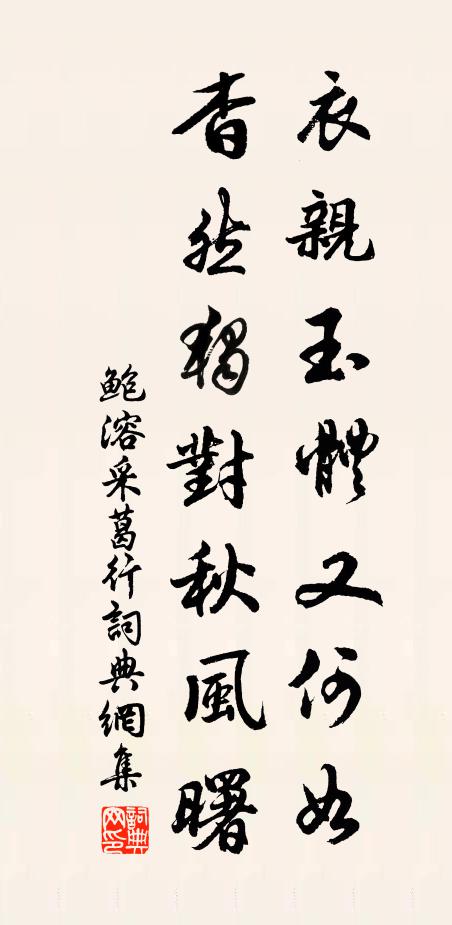 衣親玉體又何如
杳然獨對秋風曙
鮑溶采葛行詞典網集
詞典网印